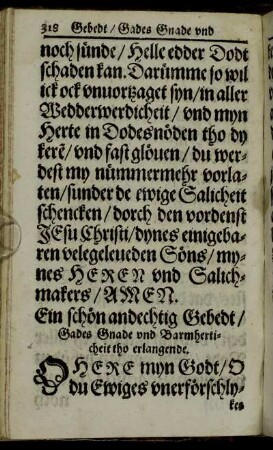 318 Gebedt / Gades Gnade vnd
noch sünde / Helle edder Dodt
schaden kan. Darümme so wil
ick ock vnuortzaget syn / in aller
Wedderwerdicheit / vnd myn
Herte in Dodesnöden tho dy
kerē / vnd fast glöuen / du wer-
dest my nümmermehr vorla-
ten / sunder de ewige Salicheit
schencken / dorch den vordenst
JEsu Christi / dynes einigeba-
ren velegeleueden Söns / my-
nes HEREN vnd Salich-
makers / AMEN.
Ein schön andechtig Gebedt /
Gades Gnade vnd Barmherti-
cheit tho erlangende.
O HERE myn Godt / O
du Ewiges vnerförschly-
kes